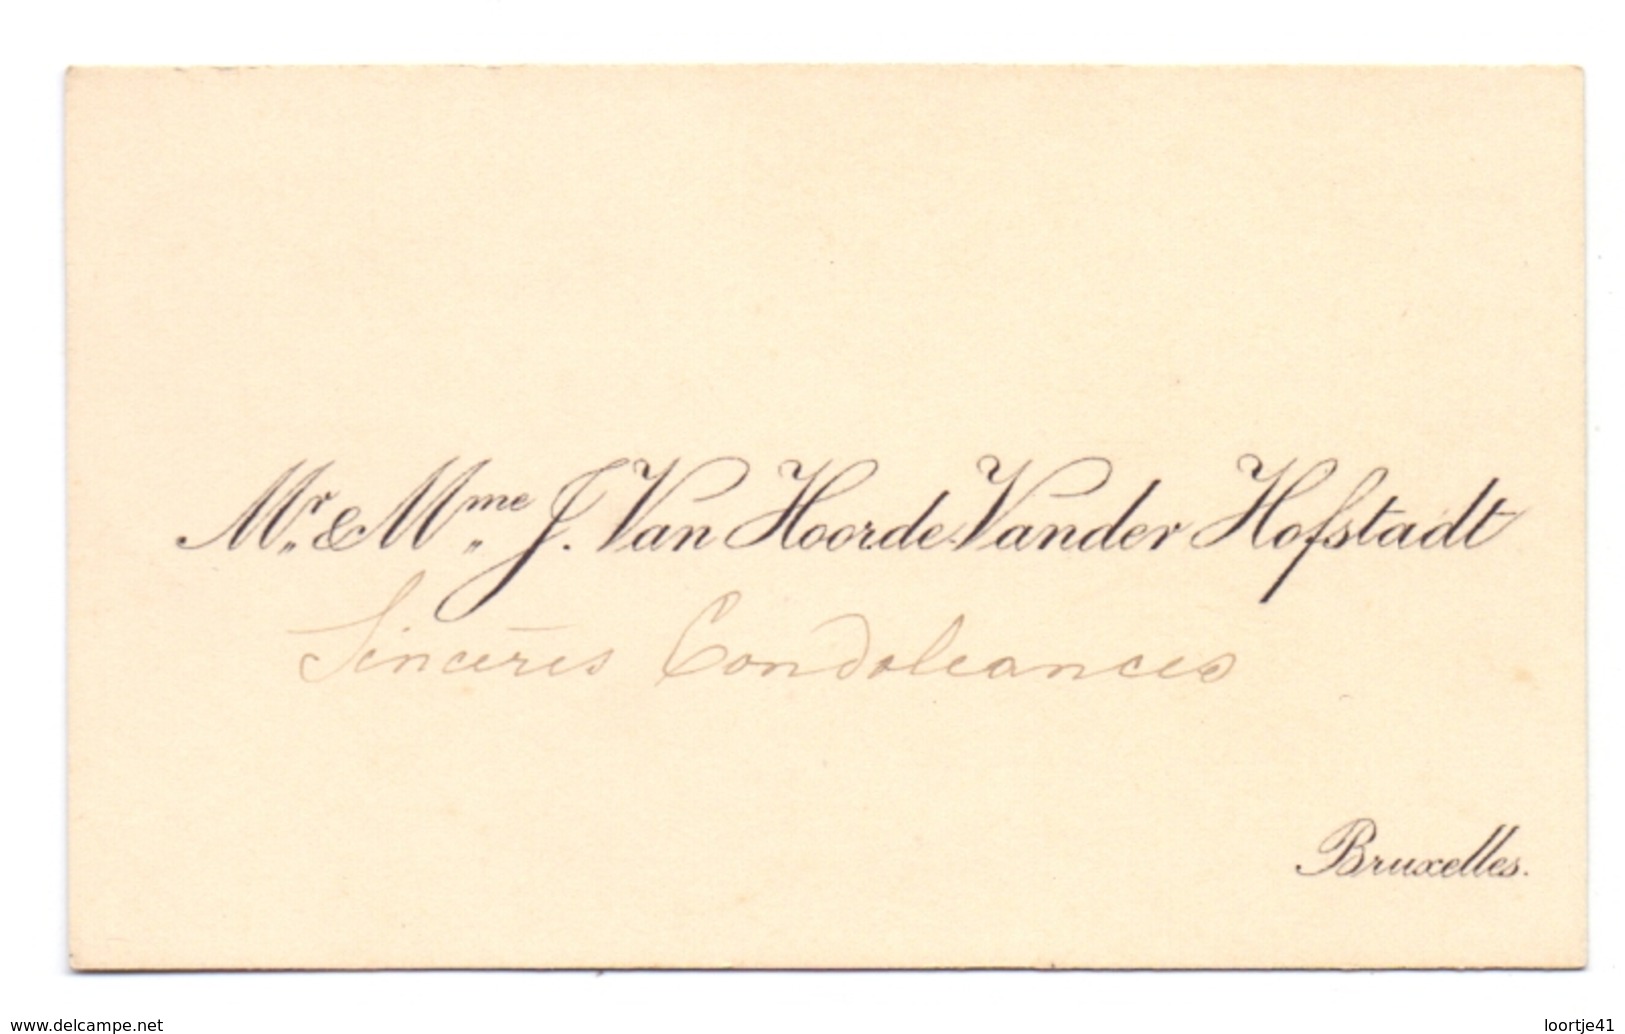 Mr. & Mme. J. Van Hoorde-Vander Hofstadt
Sincères Condoléances
Bruxelles.
www.delcampe.net
loortje41